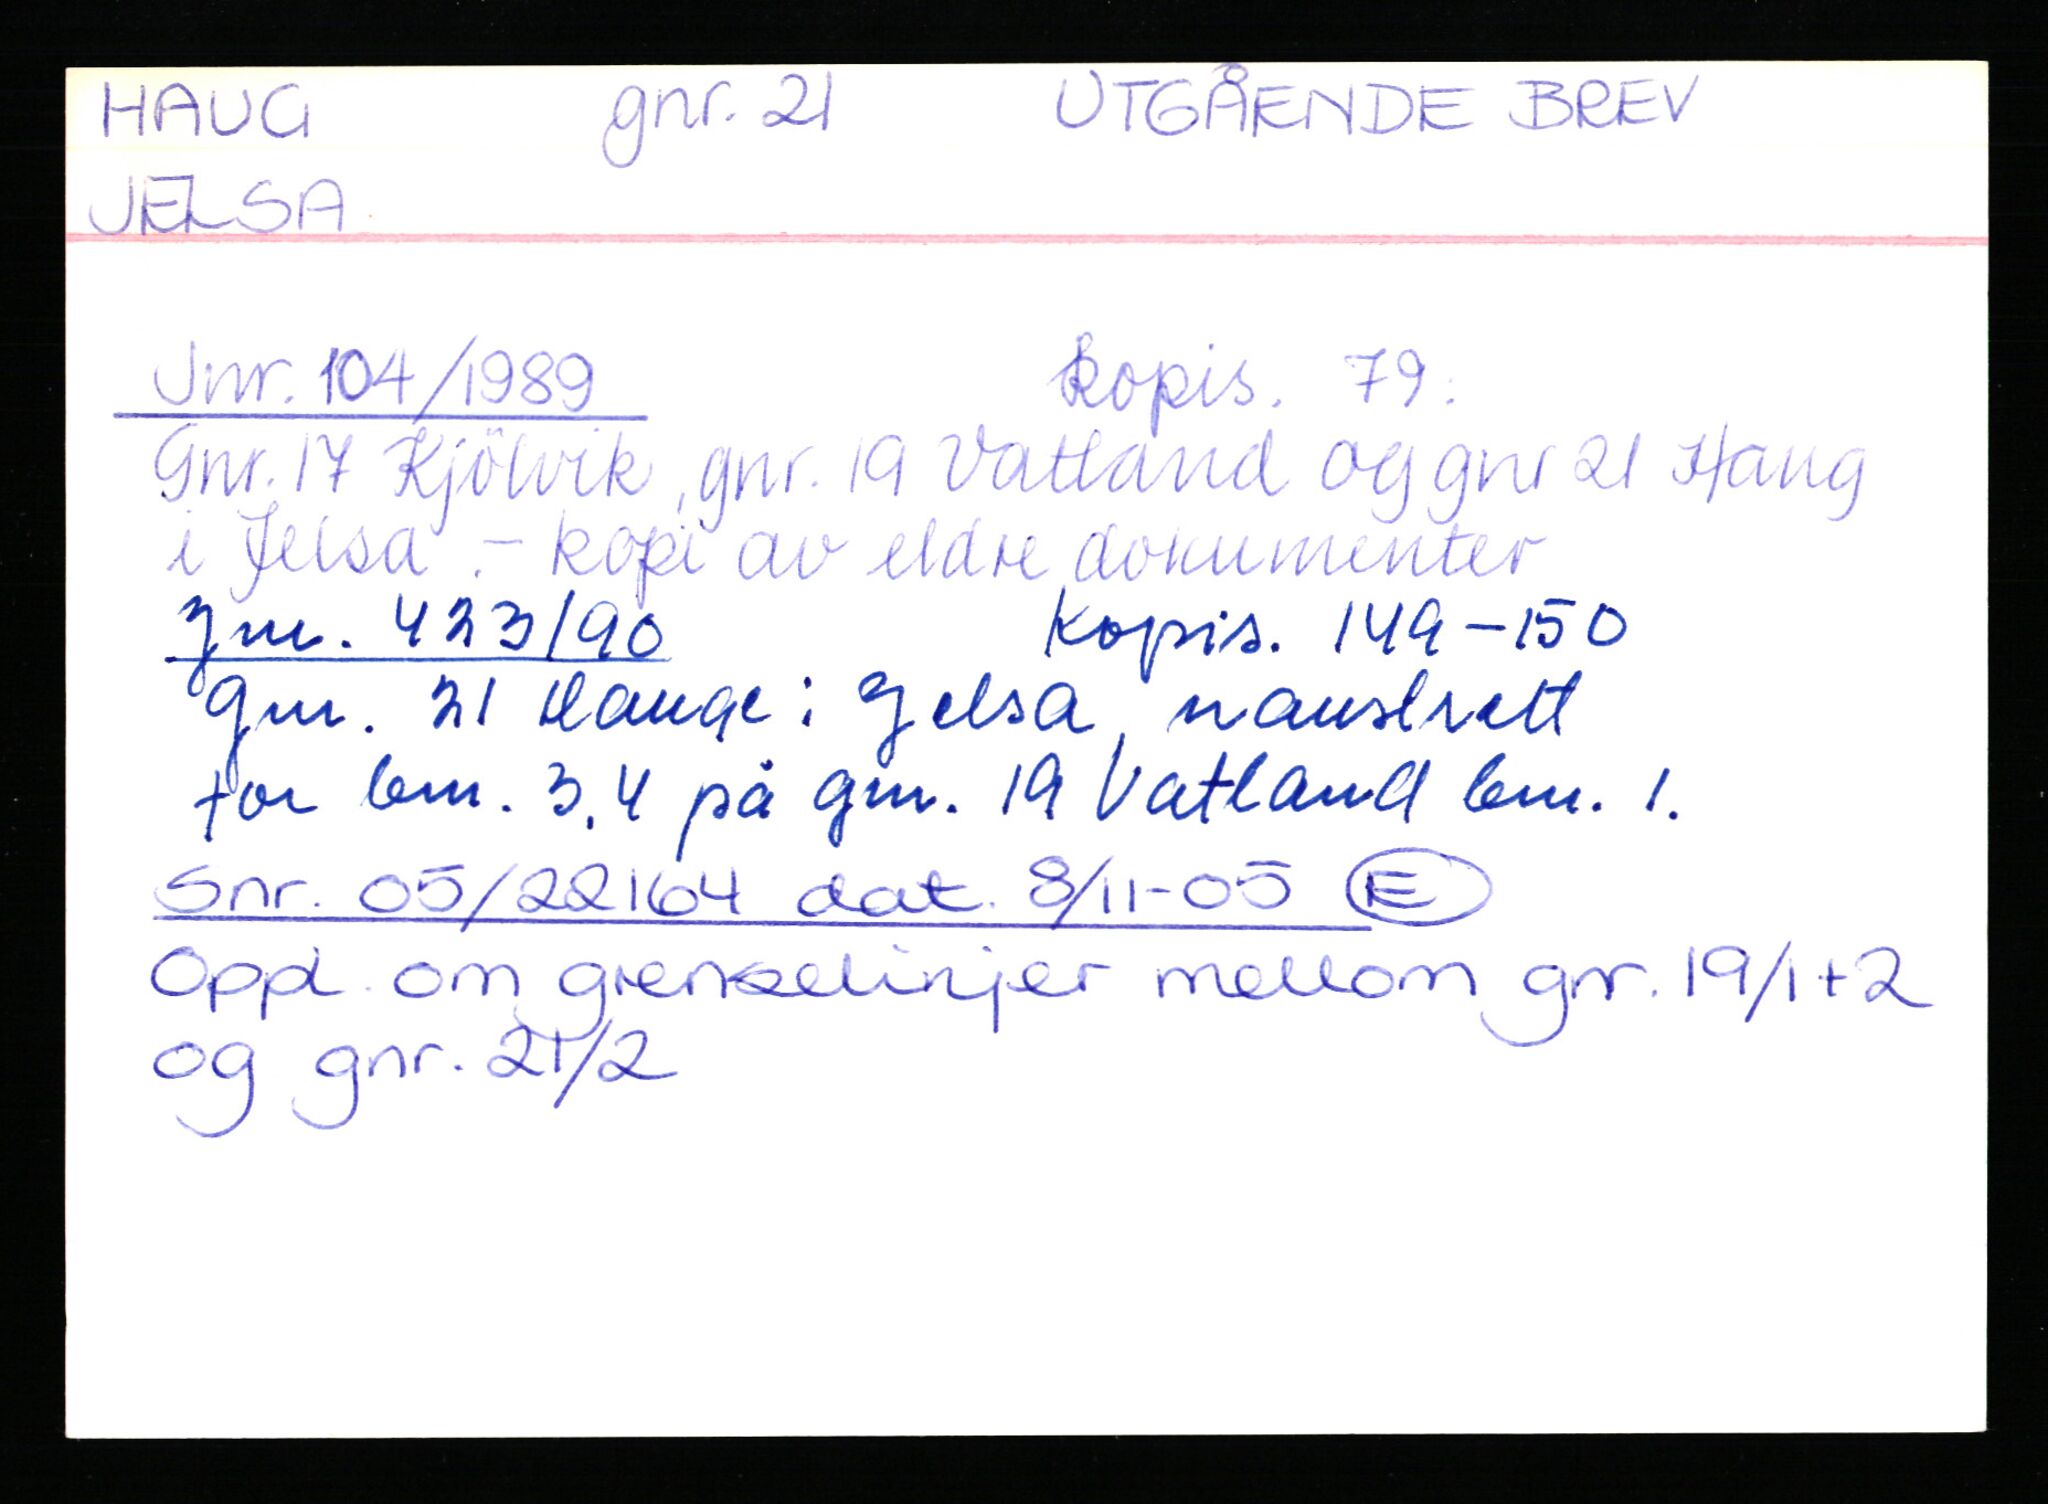 HAUG gnr. 21 UTGÅENDE BREV
JELSA
Jnr. 104/1989 kopis. 79.
Gnr. 17 Kjölvik, gnr. 19 Vatland og gnr 21 Haug
i Jelsa. - kopi av eldre dokumenter
Jnr. 423/90 kopis. 149-150
gnr. 21 Hauge i Jelsa, naustrett
for bnr. 3,4 på gnr. 19 Vatland bnr. 1.
Snr. 05/22164 dat. 8/11-05 E
Oppl. om grenselinjer mellom gnr. 19/1+2
og gnr. 21/2